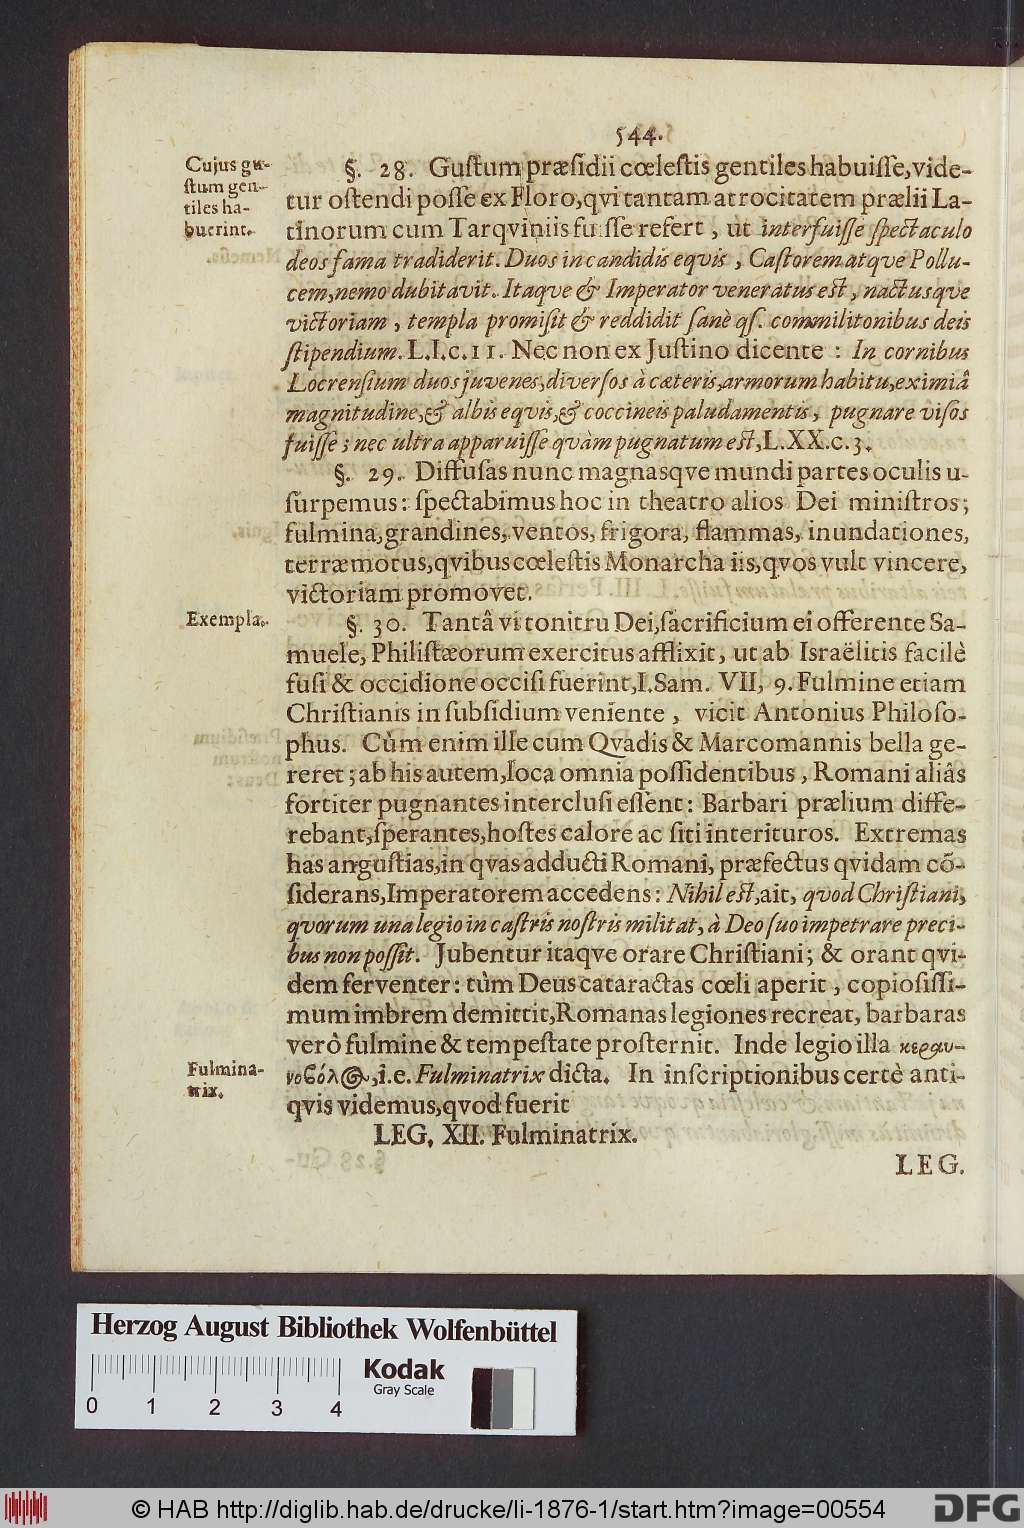 544.
Cujus gu-
ſtum gen-
tiles ha-
buerint.
§. 28. Guſtum præſidii cœleſtis gentiles habuiſſe, vide-
tur oſtendi poſſe ex Floro, qvi tantam atrocitatem prælii La-
tinorum cum Tarqviniis fuiſſe refert, ut interfuiſſe ſpectaculo
deos fama tradiderit. Duos in candidis equis, Caſtorem atqve Pollu-
cem, nemo dubitavit. Itaqve & Imperator veneratus est, nactusqve
victoriam, templa promiſit & reddidit ſanè qſ. commilitonibus deis
ſtipendium. L.I.c.11. Nec non ex Juſtino dicente: In cornibus
Locrenſium duos juvenes, diverſos à cæteris, armorum habitu, eximiâ
magnitudine, & albis eqvis, & coccineis paludamentis, pugnare viſos
fuiſſe; nec ultra apparuiſſe qvàm pugnatum est, L.XX.c.3.
§. 29. Diffuſas nunc magnasqve mundi partes oculis u-
ſurpemus: ſpectabimus hoc in theatro alios Dei miniſtros;
fulmina, grandines, ventos, frigora, flammas, inundationes,
terræmotus, qvibus cœleſtis Monarcha iis, qvos vult vincere,
victoriam promovet.
Exempla.
§. 30. Tantâ vi tonitru Dei, ſacrificium ei offerente Sa-
muele, Philiſtæorum exercitus afflixit, ut ab Israëlitis facilè
fuſi & occidione occiſi fuerint, I.Sam. VII, 9. Fulmine etiam
Chriſtianis in ſubſidium veniente, vicit Antonius Philoſo-
phus. Cùm enim ille cum Qvadis & Marcomannis bella ge-
reret; ab his autem, loca omnia poſſidentibus, Romani aliâs
fortiter pugnantes intercluſi eſſent: Barbari prælium diffe-
rebant, ſperantes, hoſtes calore ac ſiti interituros. Extremas
has anguſtias, in qvas adducti Romani, præfectus qvidam cõ-
ſiderans, Imperatorem accedens: Nihil est, ait, qvod Chriſtiani,
qvorum una legio in caſtris noſtris militat, à Deo ſuo impetrare preci-
bus non poſſit. Jubentur itaqve orare Chriſtiani; & orant qvi-
dem ferventer: tùm Deus cataractas cœli aperit, copioſiſſi-
mum imbrem demittit, Romanas legiones recreat, barbaras
verô fulmine & tempeſtate proſternit. Inde legio illa κεραυ-
Fulmina-
trix.
νοϐόλος, i.e. Fulminatrix dicta. In inſcriptionibus certè anti-
qvis videmus, qvod fuerit
LEG. XII. Fulminatrix.
LEG.
Herzog August Bibliothek Wolfenbüttel
Kodak
Gray Scale
0 1 2 3 4
© HAB http://diglib.hab.de/drucke/li-1876-1/start.htm?image=00554
DFG